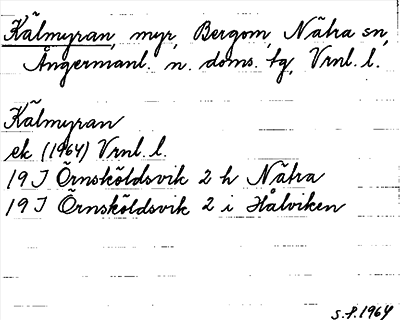 Kälmyran, myr, Bergom, Nätra sn,
Ångermanl. n. doms. tg, Vrnl. l.
Kälmyran
ek (1964) Vrnl. l.
19 J Örnsköldsvik 2 h Nätra
19 J Örnsköldsvik 2 i Hålviken
S. P. 1964